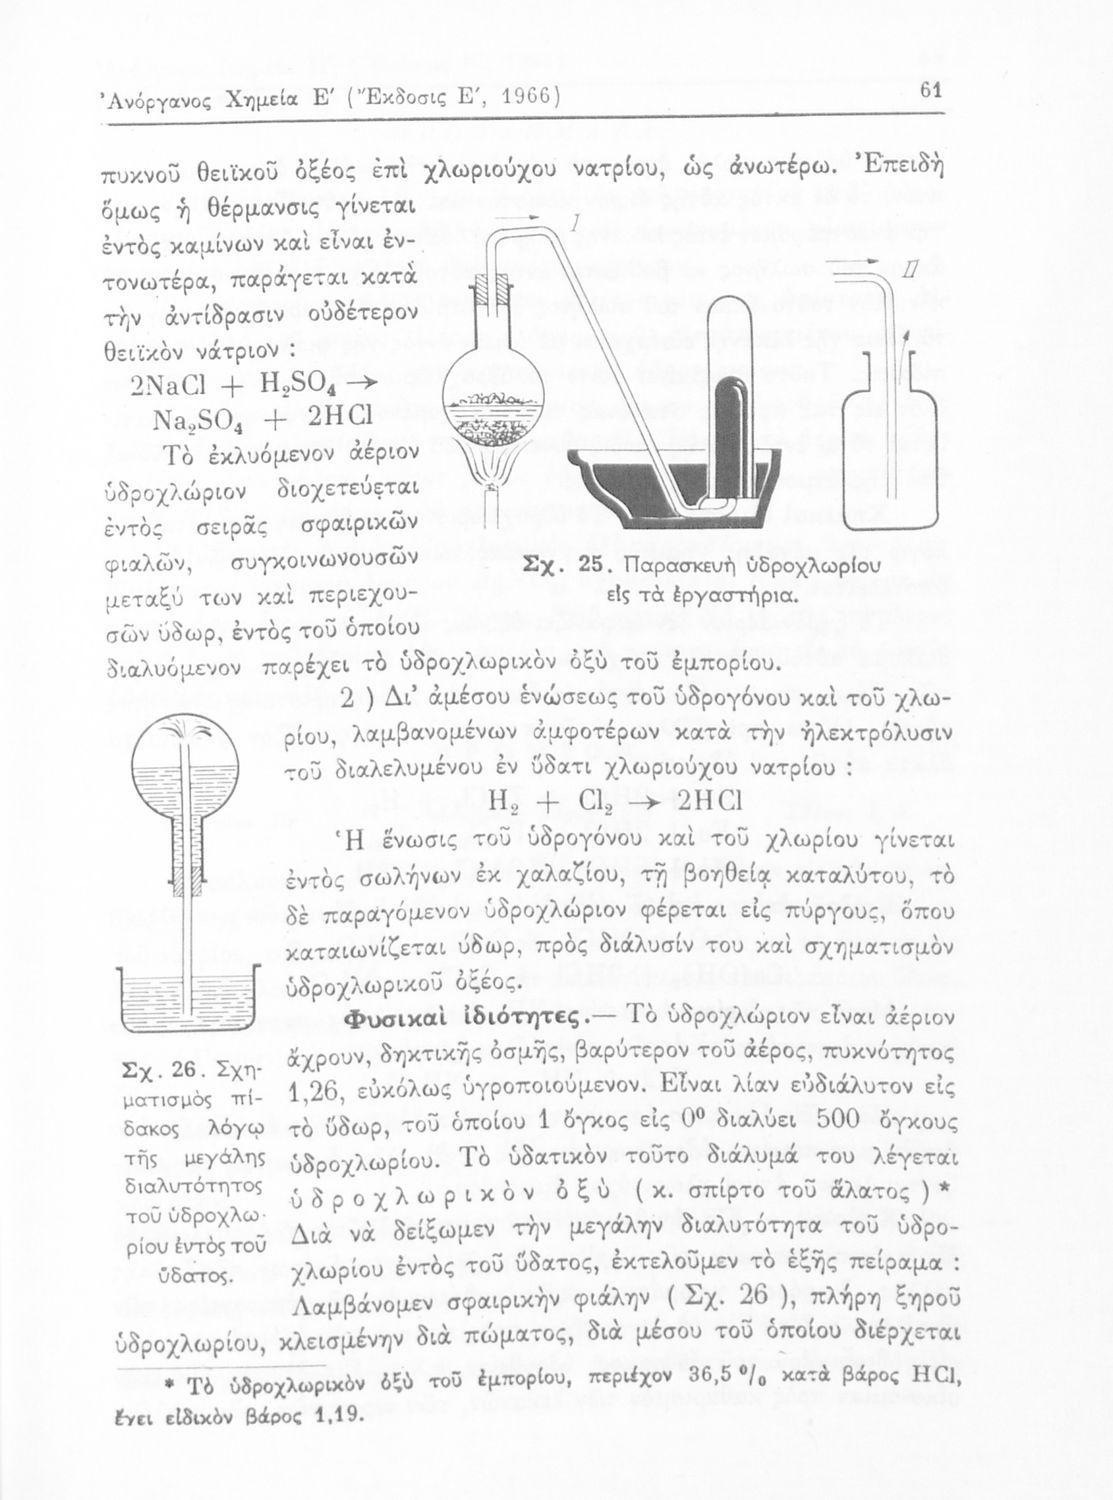 Ἀνόργανος Χημεία Ε′ (Ἔκδοσις Ε′, 1966)
61
πυκνοῦ θειϊκοῦ ὀξέος ἐπὶ χλωριούχου νατρίου, ὡς ἀνωτέρω. Ἐπειδὴ
ὅμως ἡ θέρμανσις γίνεται
ἐντὸς καμίνων καὶ εἶναι ἐν-
τονωτέρα, παράγεται κατὰ
τὴν ἀντίδρασιν οὐδέτερον
θειϊκὸν νάτριον :
2NaCl + H₂SO₄ →
Na₂SO₄ + 2HCl
Τὸ ἐκλυόμενον ἀέριον
ὑδροχλώριον διοχετεύεται
ἐντὸς σειρᾶς σφαιρικῶν
φιαλῶν, συγκοινωνουσῶν
μεταξύ των καὶ περιεχου-
σῶν ὕδωρ, ἐντὸς τοῦ ὁποίου
διαλυόμενον παρέχει τὸ ὑδροχλωρικὸν ὀξὺ τοῦ ἐμπορίου.
I
II
Σχ. 25. Παρασκευὴ ὑδροχλωρίου
εἰς τὰ ἐργαστήρια.
2 ) Δι' ἀμέσου ἑνώσεως τοῦ ὑδρογόνου καὶ τοῦ χλω-
ρίου, λαμβανομένων ἀμφοτέρων κατὰ τὴν ἠλεκτρόλυσιν
τοῦ διαλελυμένου ἐν ὕδατι χλωριούχου νατρίου :
H₂ + Cl₂ → 2HCl
Ἡ ἕνωσις τοῦ ὑδρογόνου καὶ τοῦ χλωρίου γίνεται
ἐντὸς σωλήνων ἐκ χαλαζίου, τῇ βοηθείᾳ καταλύτου, τὸ
δὲ παραγόμενον ὑδροχλώριον φέρεται εἰς πύργους, ὅπου
καταιωνίζεται ὕδωρ, πρὸς διάλυσίν του καὶ σχηματισμὸν
ὑδροχλωρικοῦ ὀξέος.
Φυσικαὶ ἰδιότητες.— Τὸ ὑδροχλώριον εἶναι ἀέριον
ἄχρουν, δηκτικῆς ὀσμῆς, βαρύτερον τοῦ ἀέρος, πυκνότητος
1,26, εὐκόλως ὑγροποιούμενον. Εἶναι λίαν εὐδιάλυτον εἰς
τὸ ὕδωρ, τοῦ ὁποίου 1 ὄγκος εἰς 0⁰ διαλύει 500 ὄγκους
ὑδροχλωρίου. Τὸ ὑδατικὸν τοῦτο διάλυμά του λέγεται
ὑδροχλωρικὸν ὀξὺ ( κ. σπίρτο τοῦ ἅλατος ) *
Διὰ νὰ δείξωμεν τὴν μεγάλην διαλυτότητα τοῦ ὑδρο-
χλωρίου ἐντὸς τοῦ ὕδατος, ἐκτελοῦμεν τὸ ἑξῆς πείραμα :
Λαμβάνομεν σφαιρικὴν φιάλην ( Σχ. 26 ), πλήρη ξηροῦ
ὑδροχλωρίου, κλεισμένην διὰ πώματος, διὰ μέσου τοῦ ὁποίου διέρχεται
Σχ. 26. Σχη-
ματισμὸς πί-
δακος λόγῳ
τῆς μεγάλης
διαλυτότητος
τοῦ ὑδροχλω-
ρίου ἐντὸς τοῦ
ὕδατος.
* Τὸ ὑδροχλωρικὸν ὀξὺ τοῦ ἐμπορίου, περιέχον 36,5 °/₀ κατὰ βάρος HCl,
ἔχει εἰδικὸν βάρος 1,19.